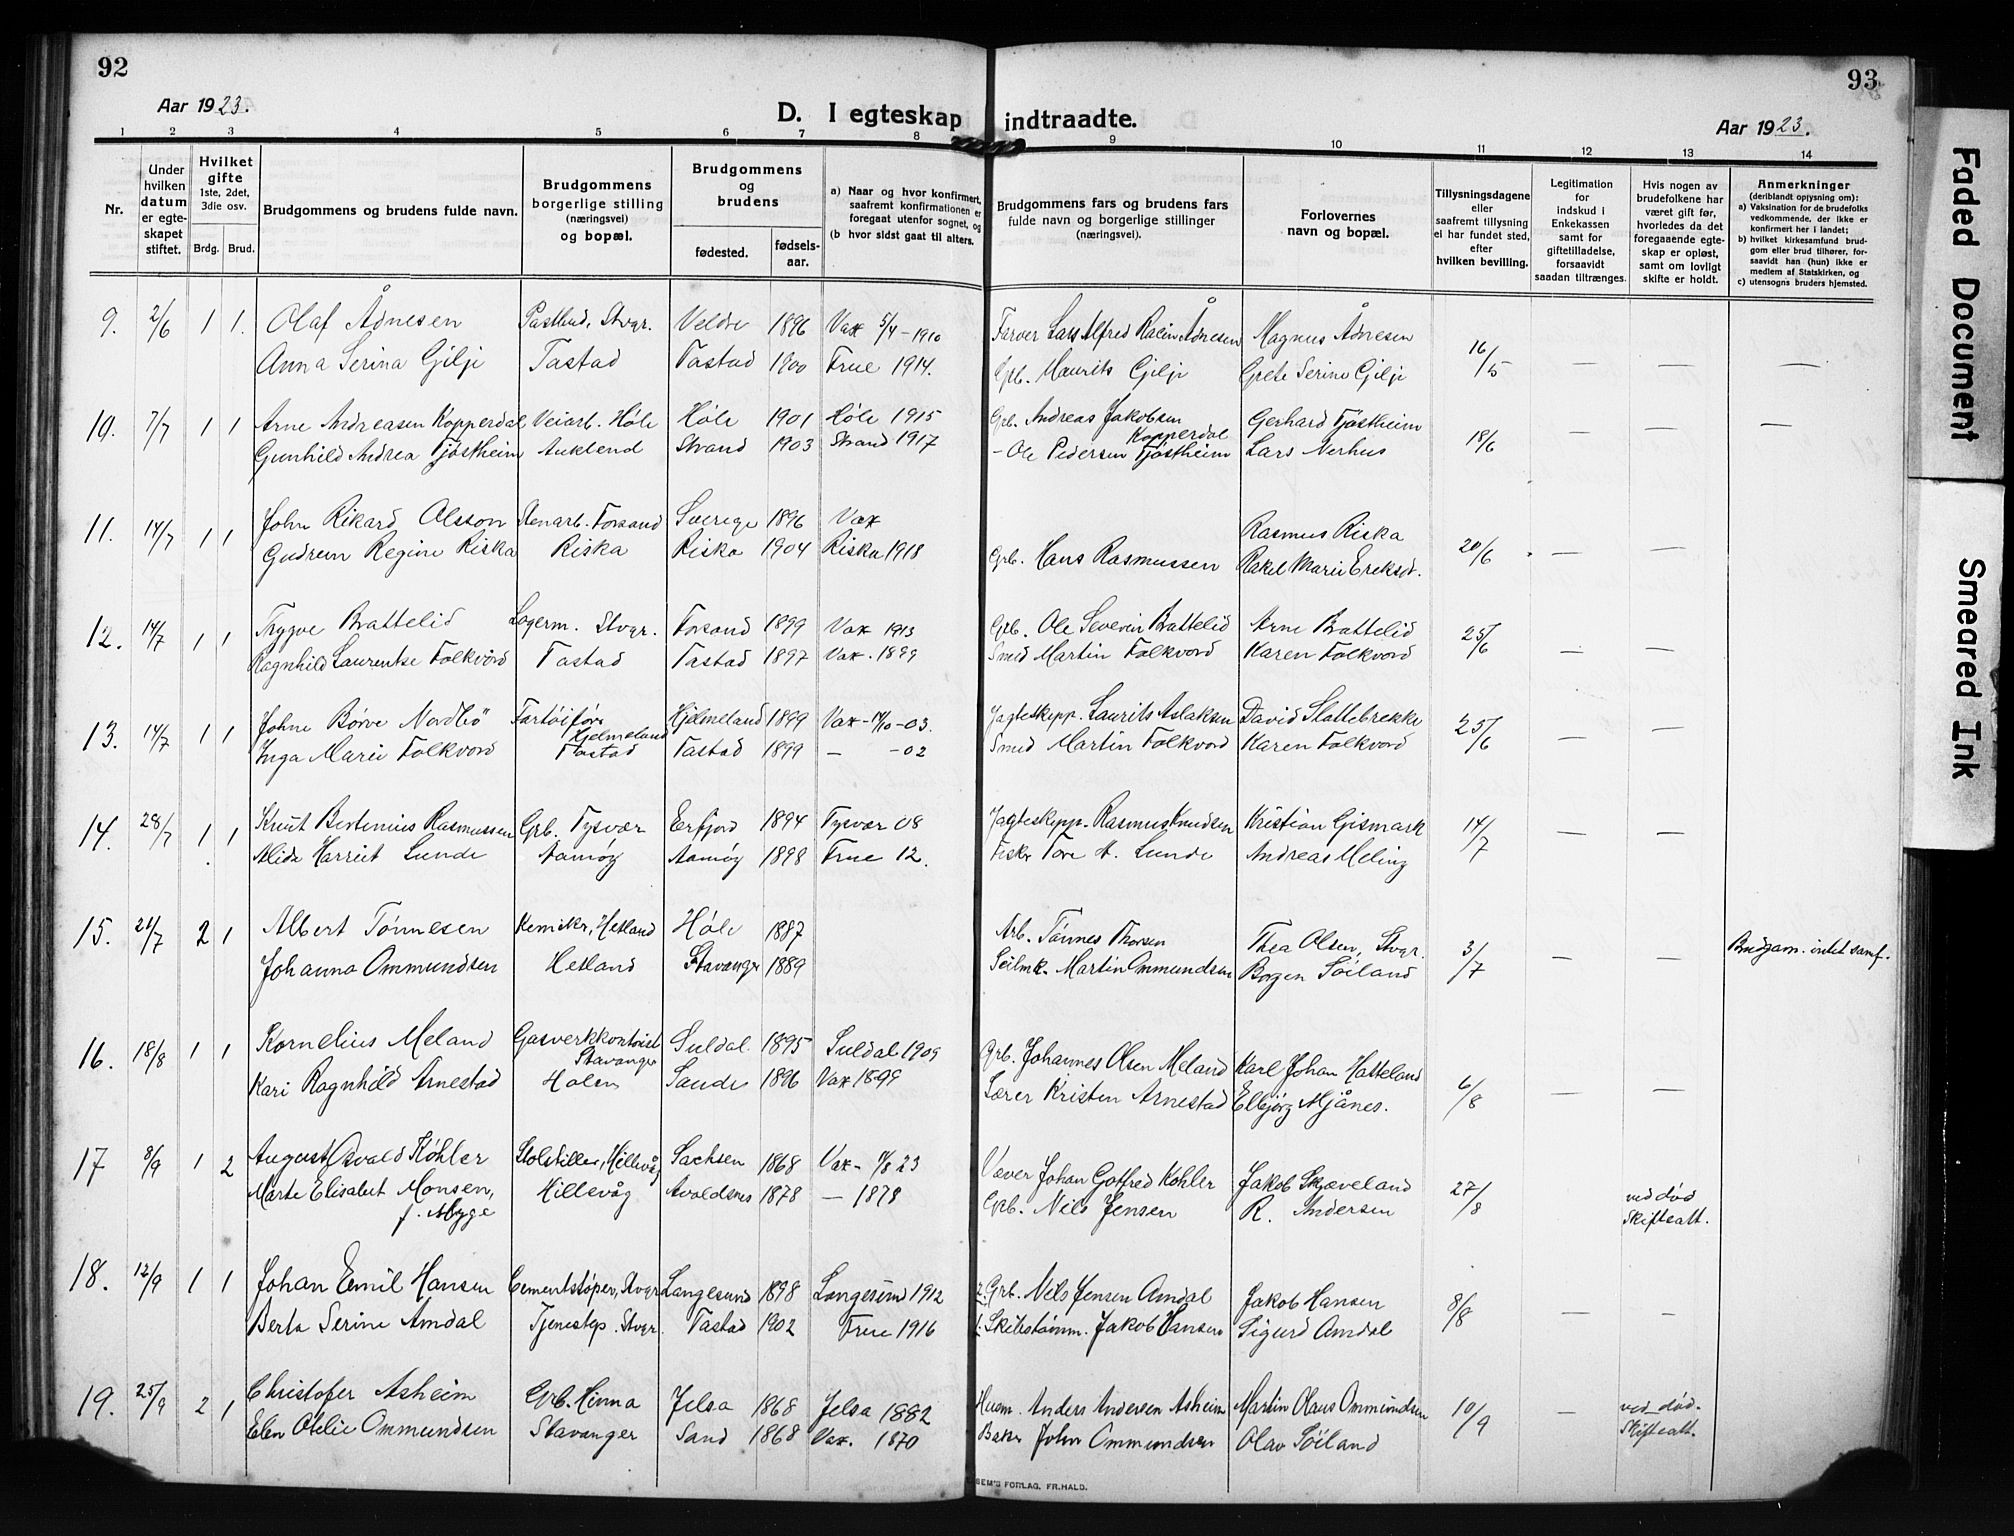 92
Aar 1923.
D. I egteskap indtraadte.
93
Aar 1923.
1 2 3 4 5 6 7 8 9 10 11 12 13 14
Nr.
Under hvilken datum er egteskapet stiftet.
Hvilket gifte
1ste, 2det, 3die osv.
Brdg. Brud.
Brudgommens og brudens fulde navn.
Brudgommens borgerlige stilling (næringsvei) og bopæl.
Brudgommens og brudens
fødested.
fødsels-aar.
a) Naar og hvor konfirmert, saafremt konfirmationen er foregaat utenfor sognet, og
(b hvor sidst gaat til alters.
Brudgommens fars og brudens fars fulde navn og borgerlige stillinger (næringsvei).
Forlovernes navn og bopæl.
Tillysningsdagene eller saafremt tillysning ei har fundet sted, efter hvilken bevilling.
Legitimation for indskud i Enkekassen samt for giftetilladelse, forsaavidt saadan tiltrænges.
Hvis nogen av brudefolkene har været gift før, hvorledes da det foregaaende egteskap er opløst, samt om lovligt skifte er holdt.
Anmerkninger
(deriblandt opjysning om):
a) Vaksination for de brudefolks vedkommende, der ikke er konfirmert her i landet;
b) hvilket kirkesamfund brudgom eller brud tilhører, forsaavidt han (hun) ikke er medlem af Statskirken, og
c) utensogns bruders hjemsted.
9. 2/6 1 1. Olaf Ådnesen Postbud, Stvgr. Veldre 1896 Vax 5/4-1910 Farver Lars Alfred Racin Ådnesen Magnus Ådnesen 16/5 — — —
Anna Serina Gilje Tastad Tastad 1900 Frue 1914. Grb. Maurits Gilje Grete Serine Gilje
10. 7/7 1 1 Arne Andreasen Kopperdal Veiarb. Høle Høle 1901 Høle 1915 Grb. Andreas Jakobsen Kopperdal Gerhard Tjøstheim 18/6 — — —
Gunhild Andrea Tjøstheim Auklend Strand 1903 Strand 1917 - Ole Pedersen Tjøstheim Lars Nerhus
11. 14/7 1 1 John Rikard Olsson Stenarb. Forsand Sverige 1896 Vax Rasmus Riska 20/6 — —
Gudrun Regine Riska Riska Riska 1904 Riska 1918 Grb. Hans Rasmussen Rakel Marie Eriksdt.
12. 14/7 1 1 Trygve Brattelid Lagerm. Stvgr. Forsand 1899 Vax 1913 Grb. Ole Severin Brattelid Arne Brattelid 25/6 — —
Ragnhild Laurentse Folkvord Tastad Tastad 1897 Vax. 1899 Smed Martin Folkvord Karen Folkvord
13. 14/7 1 1 Johne Børve Nordbö Fartøifør. Hjelmeland Hjelmeland 1899 Vax-14/10-03. Jagteskipp. Laurits Aslaksen David Slattebrekke 25/6 — —
Inga Marie Folkvord Tastad Tastad 1899 — -02 Smed Martin Folkvord Karen Folkvord
14. 28/7 1 1 Knut Bertinius Rasmussen Grb. Tysvær Erfjord 1894 Tysvær 08 Jagteskipp. Rasmus Knudsen Kristian Gismark 14/7 — —
Alide Harriet Lunde Aamøy Aamøy 1898 Frue 12. Fiskr Tore H. Lunde Andreas Meling
15. 21/7 2 1 Albert Tønnesen Kemikr, Hetland Høle 1887 Arb. Tønnes Thorsen Thea Olsen, Stvgr. 3/7 — — Brudgom. intet samf.
Johanna Ommundsen Hetland Stavanger 1889 Seilmk. Martin Ommundsen Borgen Søiland
16. 18/8 1 1 Kornelius Meland Gasverkkontorist Stavanger Suldal 1895 Suldal 1909 Grb. Johannes Olsen Meland Karl Johan Hatteland 6/8 — —
Kari Ragnhild Arnestad Holen Sande 1896 Vax 1899 Lærer Kristen Arnestad Elbjørg Mjånes.
17 8/9 1 2 August Osvald Köhler Stolstiller, Hillevåg Sachsen 1868 Vax- 11/8 23 Væver Johan Gotfred Kohler Jakob Skjæveland 27/8 ved død Skifteatt.
Marte Elisabet Monsen, f. Myge Hillevåg Avaldsnes 1878 — 1878 Grb. Nils Jensen R. Andersen
18. 12/9 1 1 Johan Emil Hansen Cementstøper, Stvgr Langesund 1898 Langesund 1912 2. Grb. Nils Jensen Amdal Jakob Hansen 8/8 — —
Berta Serine Amdal Tjenestep. Stvgr. Tastad 1902 Frue 1916 1. Skibstømm. Jakob Hansen Sigurd Amdal
19. 25/9 2 1 Christofer Asheim Grb. Hinna Jelsa 1868 Jelsa 1882 Husm. Anders Andersen Asheim Martin Olaus Ommundsen 10/9 — ved død. Skifteatt.
Elen Otelie Ommundsen Stavanger Sand 1868 Vax. 1870 Baker John Ommundsen Olav Søiland
SEM'S FORLAG, FR.HALD.
Faded Document
Smeared Ink